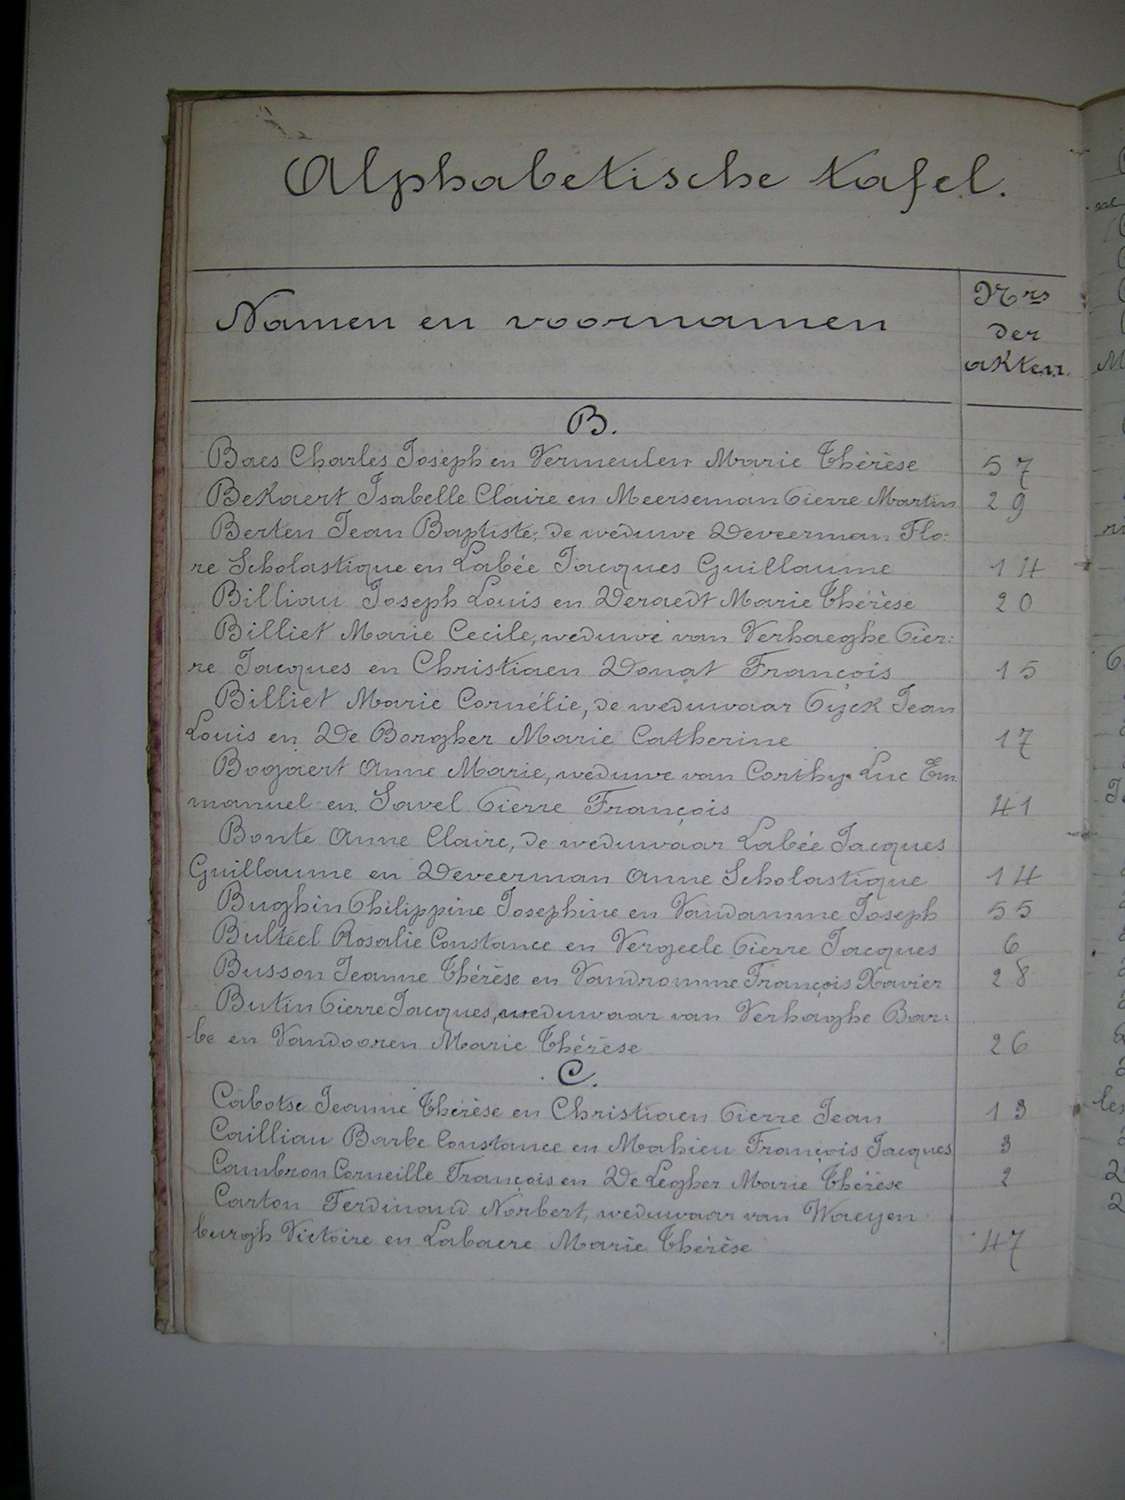 Alphabetische tafel.
Namen en voornamen
Nrs
der
akten.
B.
Baes Charles Joseph en Vermeulen Marie Thérèse 57
Bekaert Isabelle Claire en Meerseman Pierre Martin 29
Berten Jean Baptiste, de weduwe Deveerman Flo:
re Scholastique en Labée Jacques Guillaume 14
Billiau Joseph Louis en Deraedt Marie Thérèse 20
Billiet Marie Cecile, weduwe van Verhaeghe Pier:
re Jacques en Christiaen Donat François 15
Billiet Marie Cornélie, de weduwaar Pijck Jean
Louis en De Borgher Marie Catherine 17
Bogaert Anne Marie, weduwe van Corthy Luc Em
manuel en Savel Pierre François 41
Bonte Anne Claire, de weduwaar Labée Jacques
Guillaume en Deveerman Anne Scholastique 14
Bughin Philippine Josephine en Vandamme Joseph 55
Bulteel Rosalie Constance en Vergeele Pierre Jacques 6
Busson Jeanne Thérèse en Vandromme François Xavier 28
Butin Pierre Jacques, weduwaar van Verhaghe Bar:
be en Vandooren Marie Thérèse 26
C.
Cabotse Jeanne Thérèse en Christiaen Pierre Jean 13
Cailliau Barbe Constance en Mahieu François Jacques 3
Cambron Corneille François en De Legher Marie Thérèse 2
Carton Ferdinand Norbert, weduwaar van Waeyen
burgh Victoire en Labaere Marie Thérèse 47